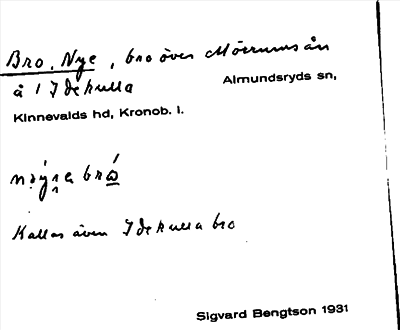 Bro, Nye, bro över Mörrumsån
å 1 Idekulla Almundsryds sn,
Kinnevalds hd, Kronob. l.
bró
Kallas även Idekulla bro
Sigvard Bengtson 1931